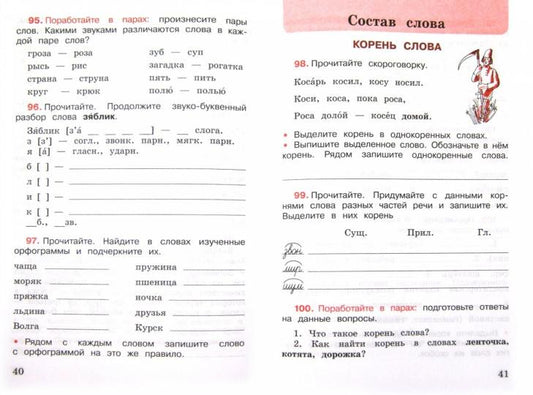 95. Поработайте в парах: произнесите пары
слов. Какими звуками различаются слова в каж-
дой паре слов?
гроза — роза зуб — суп
рысь — рис загадка — рогатка
страна — струна пять — пить
круг — крюк полю — полью
96. Прочитайте. Продолжите звуко-буквенный
разбор слова зяблик.
Зяблик [з'а́ __ __ __ __ __] — __ слога.
з [з'] — согл., звонк. парн., мягк. парн.
я [а́] — гласн., ударн.
б [ ] —
л [ ] —
и [ ] —
к [ ] —
__б., __зв.
97. Прочитайте. Найдите в словах изученные
орфограммы и подчеркните их.
чаща пружина
моряк пшеница
пряжка ночка
льдина друзья
Волга Курск
• Рядом с каждым словом запишите слово
с орфограммой на это же правило.
40
Состав слова
КОРЕНЬ СЛОВА
98. Прочитайте скороговорку.
Коса́рь косил, косу носил.
Коси, коса, пока роса,
Роса доло́й — косе́ц домой.
• Выделите корень в однокоренных словах.
• Выпишите выделенное слово. Обозначьте в нём
корень. Рядом запишите однокоренные слова.
99. Прочитайте. Придумайте с данными кор-
нями слова разных частей речи и запишите их.
Выделите в них корень
Сущ. Прил. Гл.
звон
мир
шум
100. Поработайте в парах: подготовьте ответы
на данные вопросы.
1. Что такое корень слова?
2. Как найти корень в словах ленточка,
котята, дорожка?
41